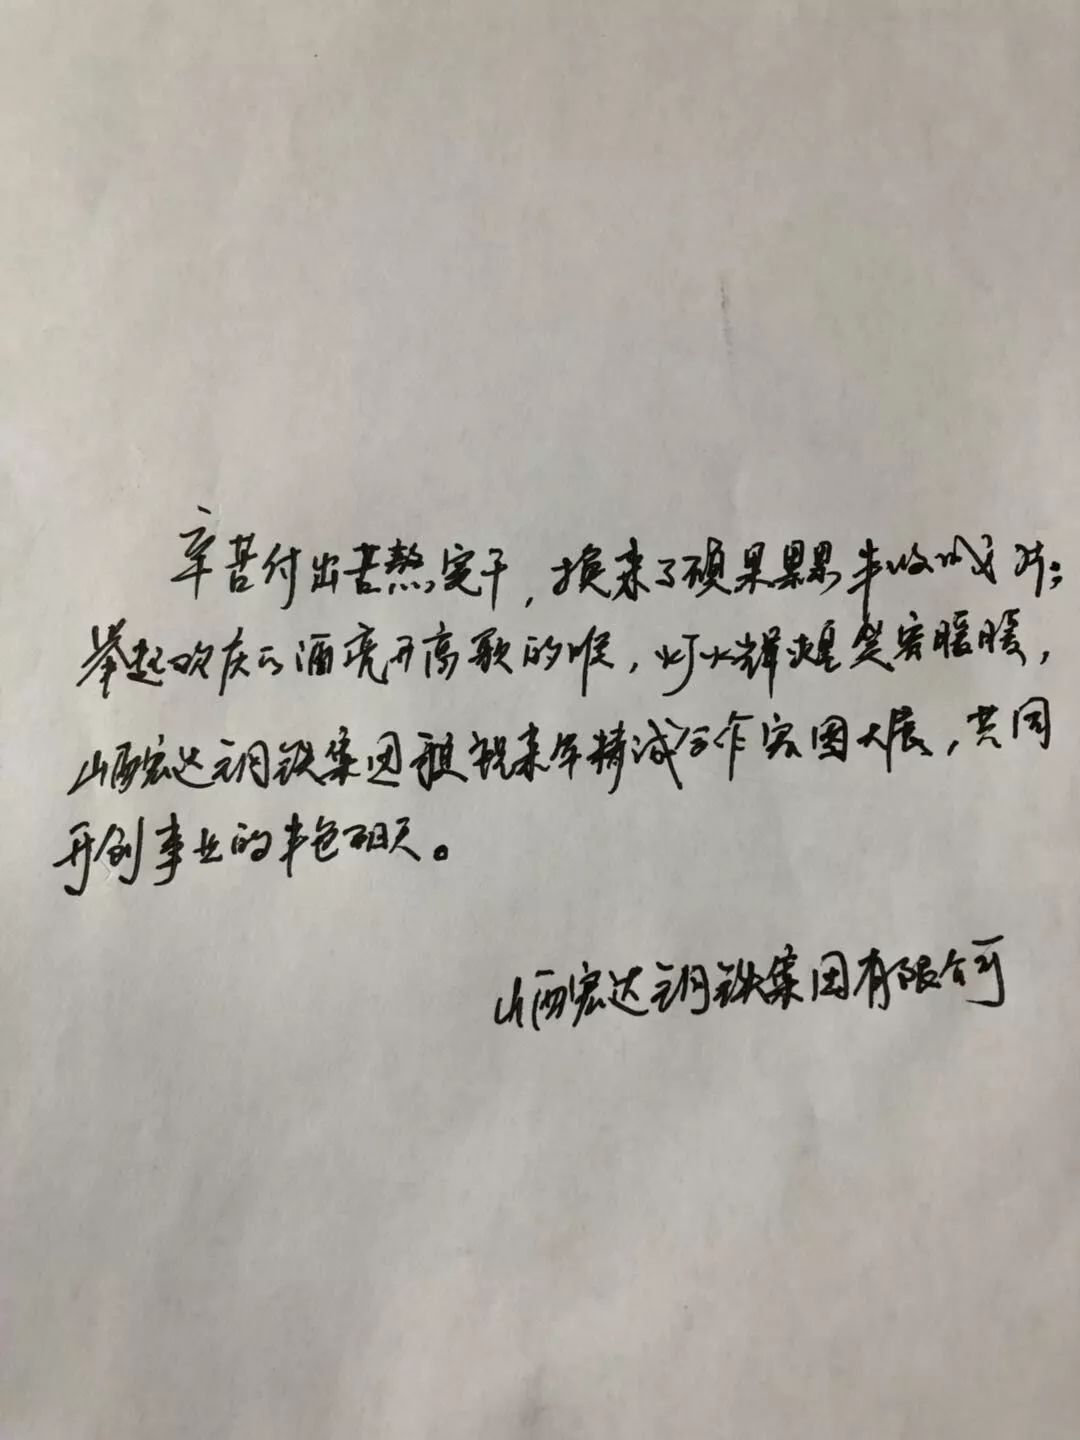 辛苦付出苦熬实干，换来了硕果累累丰收成片；
举起欢庆的酒亮开高歌的喉，灯火辉煌笑容暖暖，
山西宏达钢铁集团祝来年精诚合作宏图大展，共同
开创事业的丰色明天。
山西宏达钢铁集团有限公司